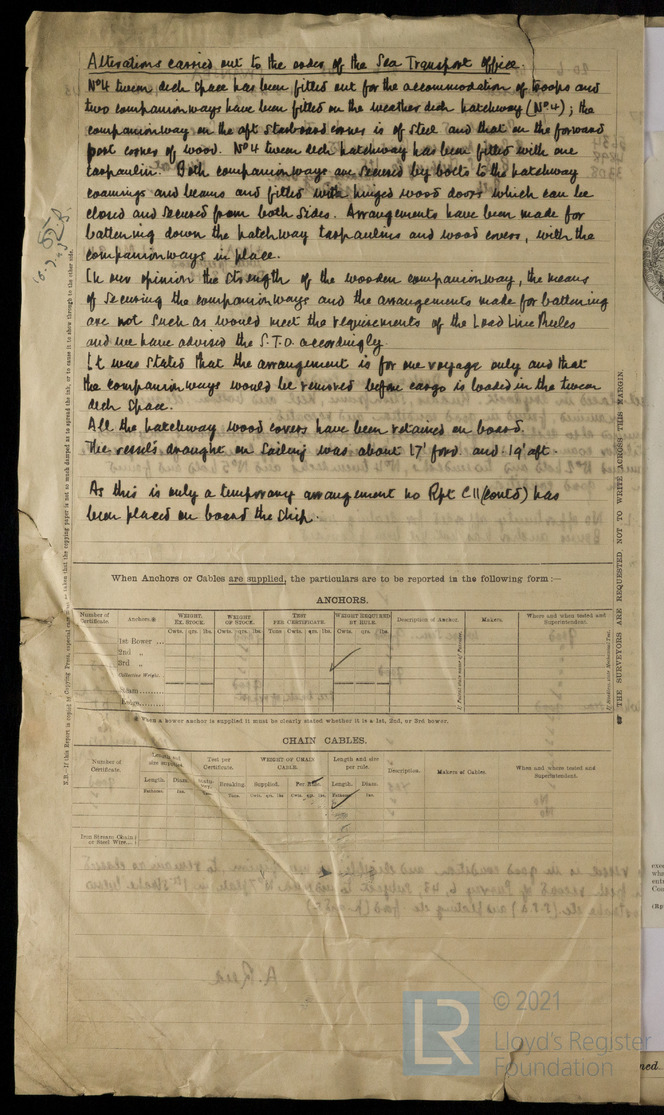 Alterations carried out to the order of the Sea Transport Office.
No4 tween deck space has been fitted out for the accommodation of troops and
two companionways have been fitted on the weather deck hatchway (No4); the
companionway on the aft starboard corner is of steel and that on the forward
port corner of wood. No4 tween deck hatchway has been fitted with one
tarpaulin. Both companionways are secured by bolts to the hatchway
coamings and beams and fitted with hinged wood doors which can be
closed and secured from both sides. Arrangements have been made for
battening down the hatchway tarpaulins and wood covers, with the
companionways in place.
In our opinion the strength of the wooden companionway, the means
of securing the companionways and the arrangements made for battening
are not such as would meet the requirements of the Load Line Rules
and we have advised the S.T.O. accordingly.
It was stated that the arrangement is for one voyage only and that
the companionways would be removed before cargo is loaded in the tween
deck space.
All the hatchway wood covers have been retained on board.
The vessel's draught on sailing was about 17' ford. and 19' aft.
As this is only a temporary arrangement no Rpt C11(contd) has
been placed on board the ship.
When Anchors or Cables are supplied, the particulars are to be reported in the following form :—
ANCHORS.
Number of Certificate. Anchors※ WEIGHT. EX. STOCK. WEIGHT OF STOCK. TEST PER CERTIFICATE. WEIGHT REQUIRED BY RULE. Description of Anchor. Makers. Where and when tested and Superintendent.
Cwts. qrs. lbs. Cwts. qrs. lbs. Tons Cwts. qrs. lbs. Cwts. qrs. lbs.
1st Bower ...
2nd „
3rd „
Collective Weight.
Stream
Kedge
※ When a bower anchor is supplied it must be clearly stated whether it is a 1st, 2nd, or 3rd bower.
CHAIN CABLES.
Number of Certificate. Length and size supplied. Test per Certificate. WEIGHT OF CHAIN CABLE. Length and size per rule. Description. Makers of Cables. When and where tested and Superintendent.
Length. Diam. Statutory. Breaking. Supplied. Per Rule. Length. Diam.
Fathoms. Ins. Tons. Tons. Cwts. qrs. lbs. Cwts. qrs. lbs. Fathoms. Ins.
Iron Stream Chain or Steel Wire...
THE SURVEYORS ARE REQUESTED NOT TO WRITE ACROSS THIS MARGIN.
LR
© 2021
Lloyd's Register
Foundation